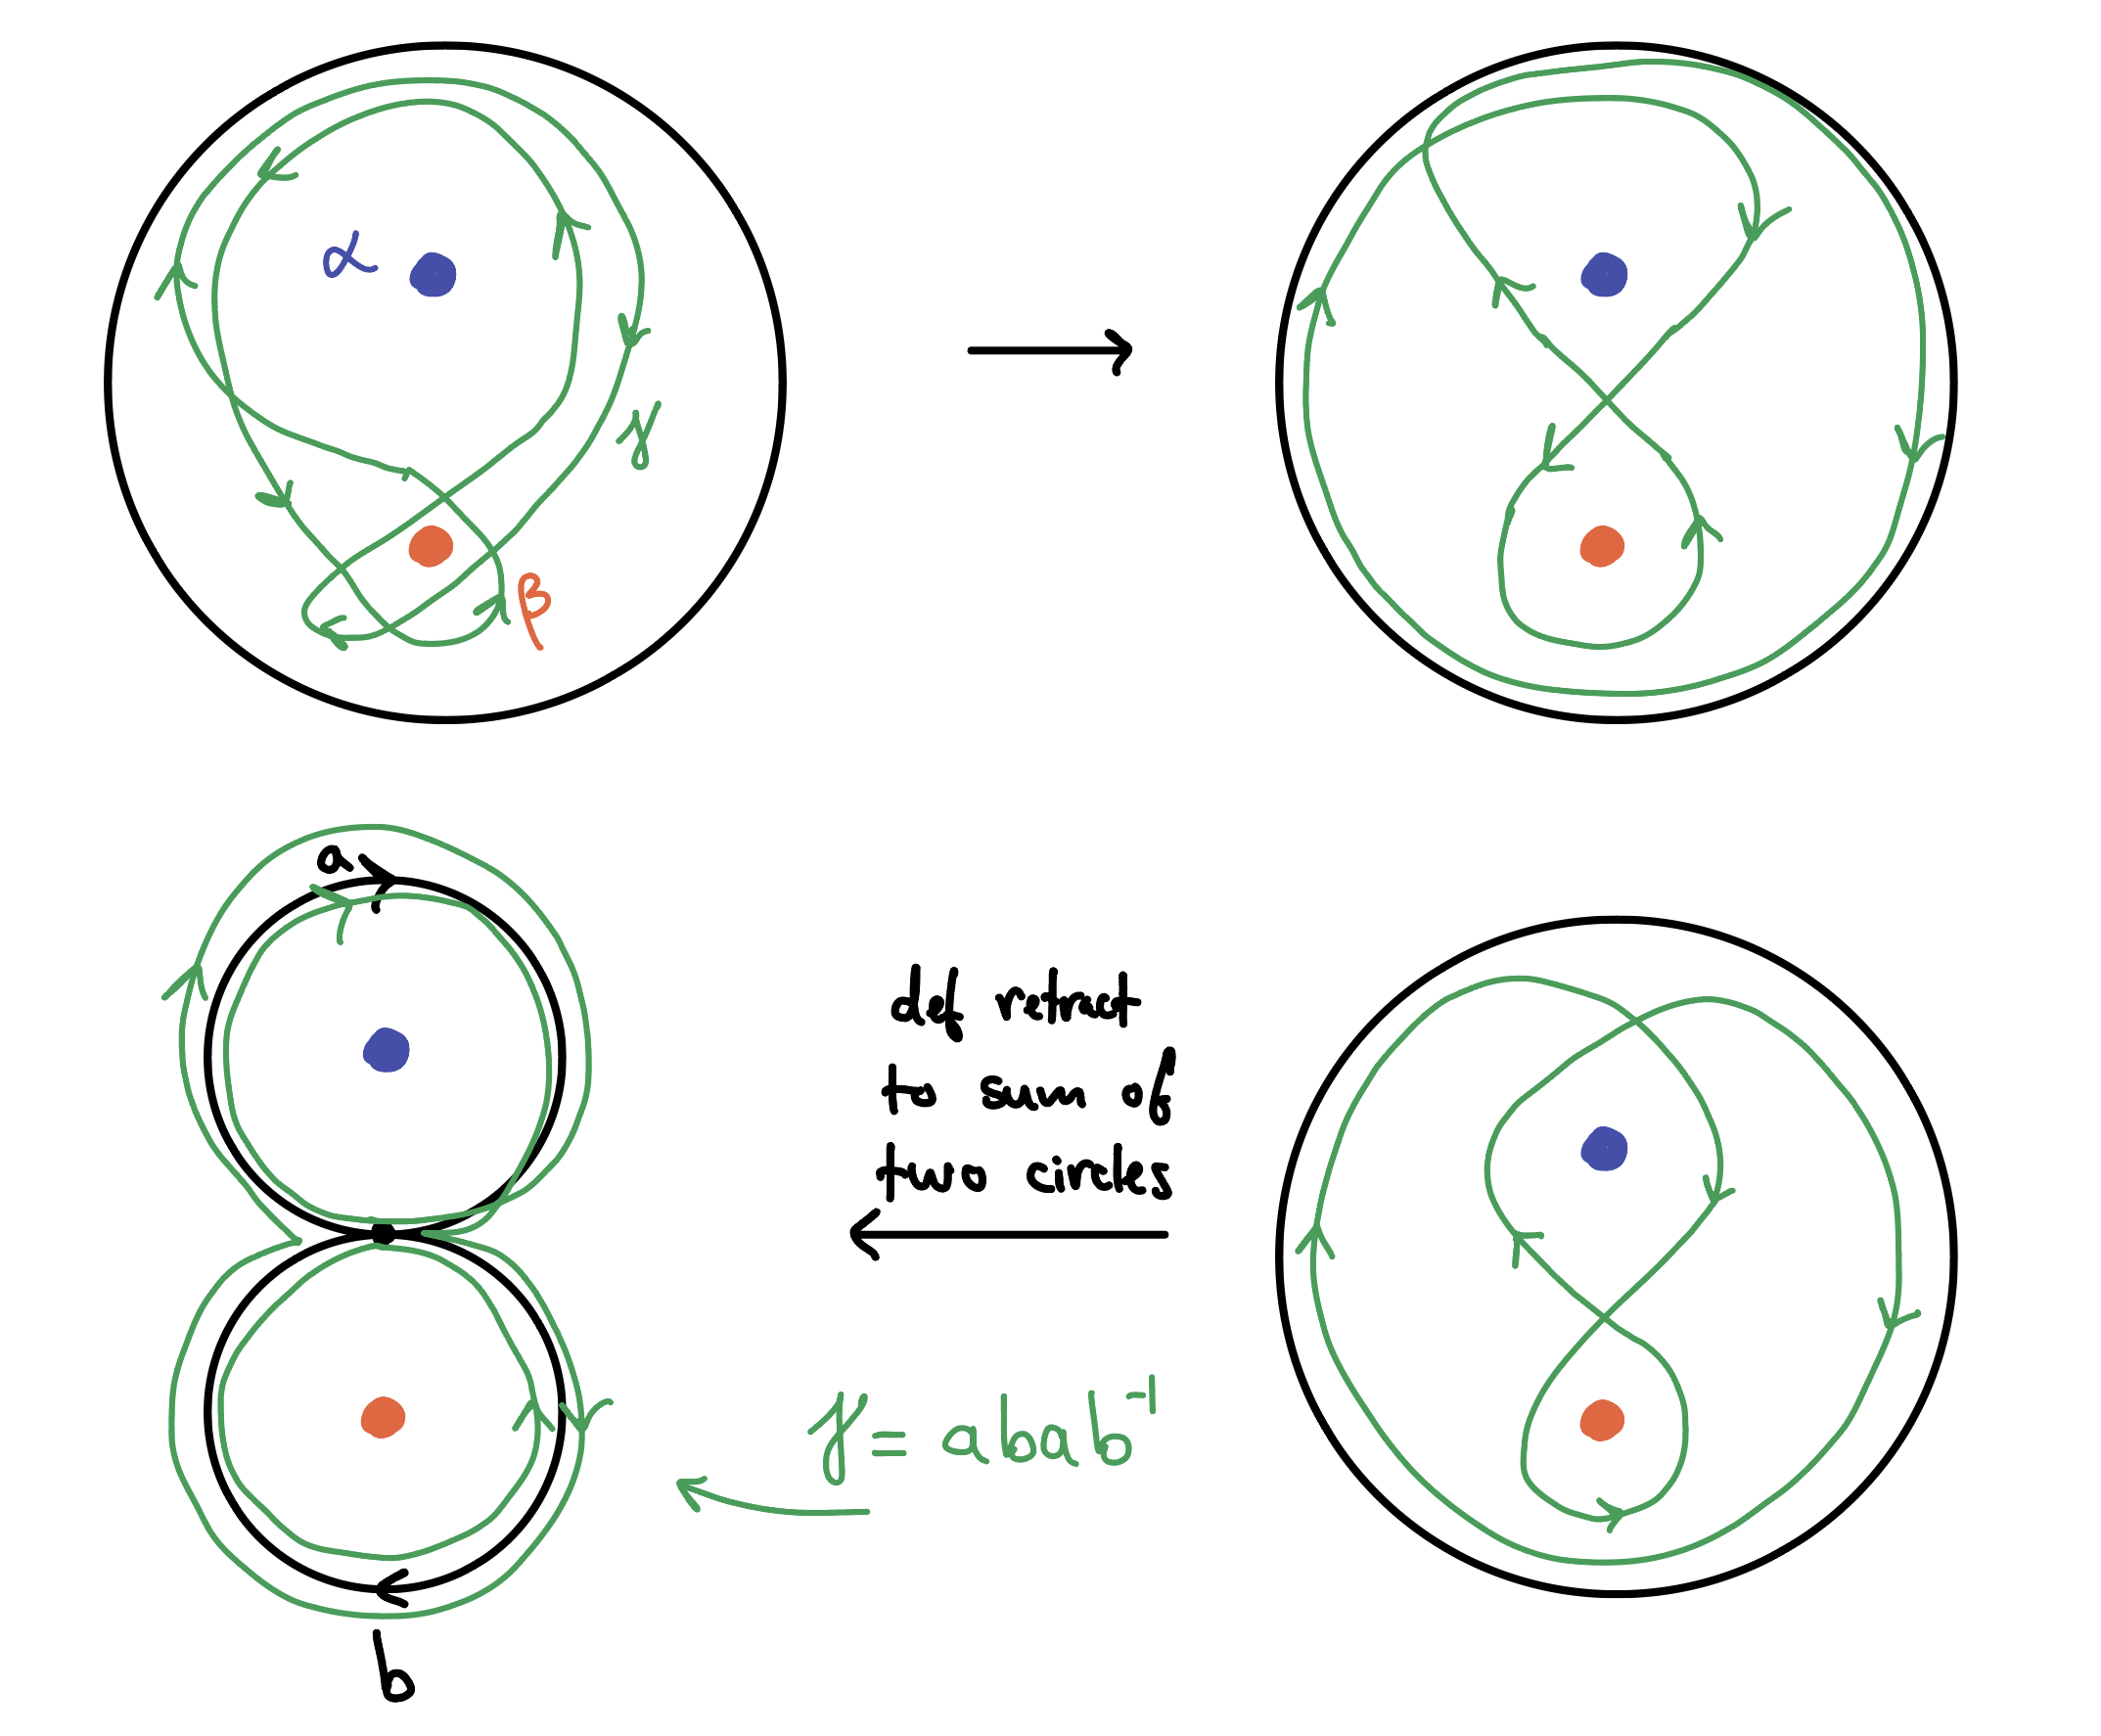 α
γ
β
a
def retract
to sum of
two circles
γ = abab⁻¹
b